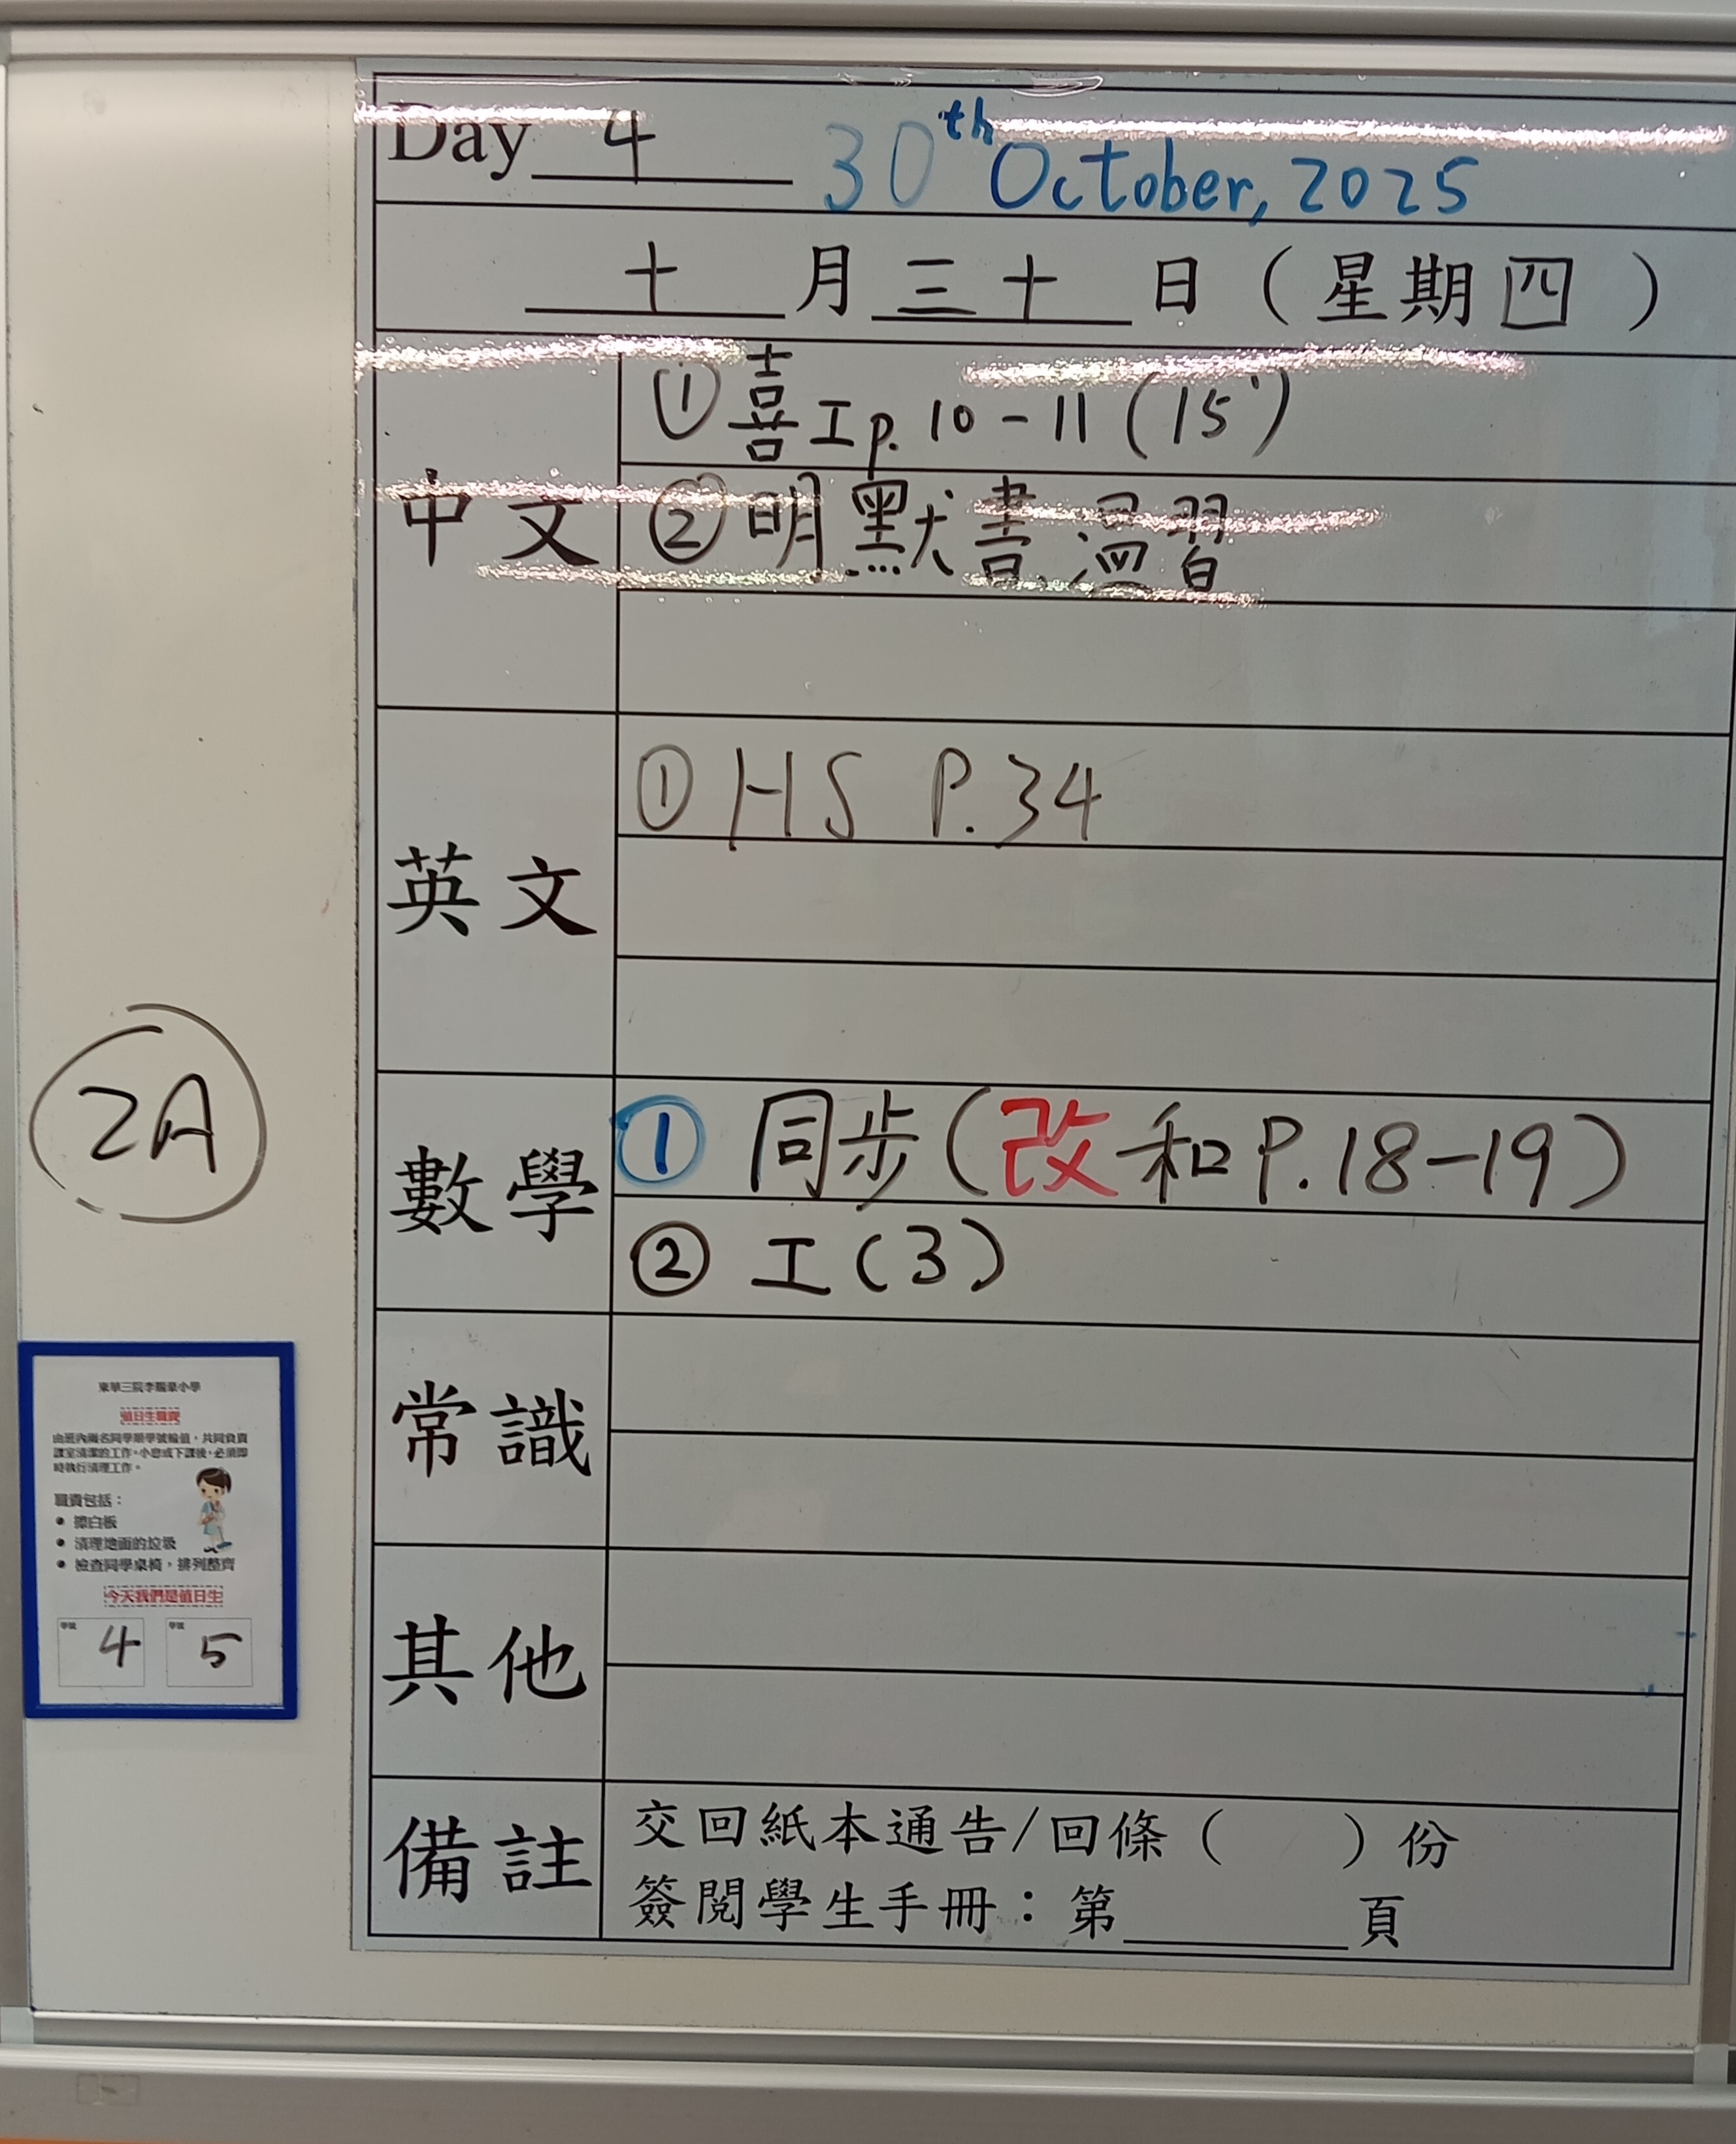 Day 4 30th October, 2025
十 月 三十 日 ( 星期四 )
中文
① 喜工p. 10 - 11 (15')
② 明默書, 溫習
英文
① HS P.34
數學
① 同步 (改和P.18-19)
② 工(3)
常識
其他
備註
交回紙本通告/回條 ( ) 份
簽閱學生手冊：第 頁
2A
東華三院李賜豪小學
值日生職責
由班內兩名同學順學號輪值，共同負責
課室清潔的工作。小息或下課後，必須即
時執行清理工作。
職責包括：
● 擦白板
● 清理地面的垃圾
● 檢查同學桌椅，排列整齊
今天我們是值日生
學號 4 學號 5